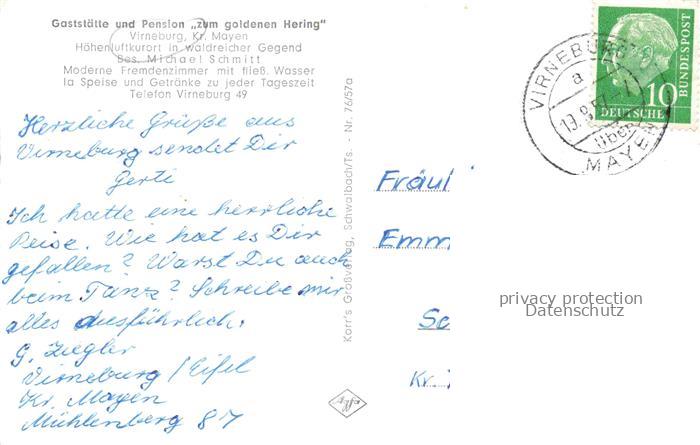 Gaststätte und Pension „zum goldenen Hering"
Virneburg, Kr. Mayen
Höhenluftkurort in waldreicher Gegend
Bes. Michael Schmitt
Moderne Fremdenzimmer mit fließ. Wasser
Ia Speise und Getränke zu jeder Tageszeit
Telefon Virneburg 49
Herzliche Grüße aus
Virneburg sendet Dir
Gerti
Ich hatte eine herrliche
Reise. Wie hat es Dir
gefallen? Warst Du auch
beim Tanz? Schreibe mir
alles ausführlich.
G. Ziegler
Virneburg / Eifel
Kr. Mayen
Mühlenberg 87
Korr's Großverlag, Schwalbach/Ts. - Nr. 76/57a
Agfa
VIRNEBURG
a
über
MAYEN
10
DEUTSCHE
BUNDESPOST
Fräul
Emm
Sc
Kr.
privacy protection
Datenschutz